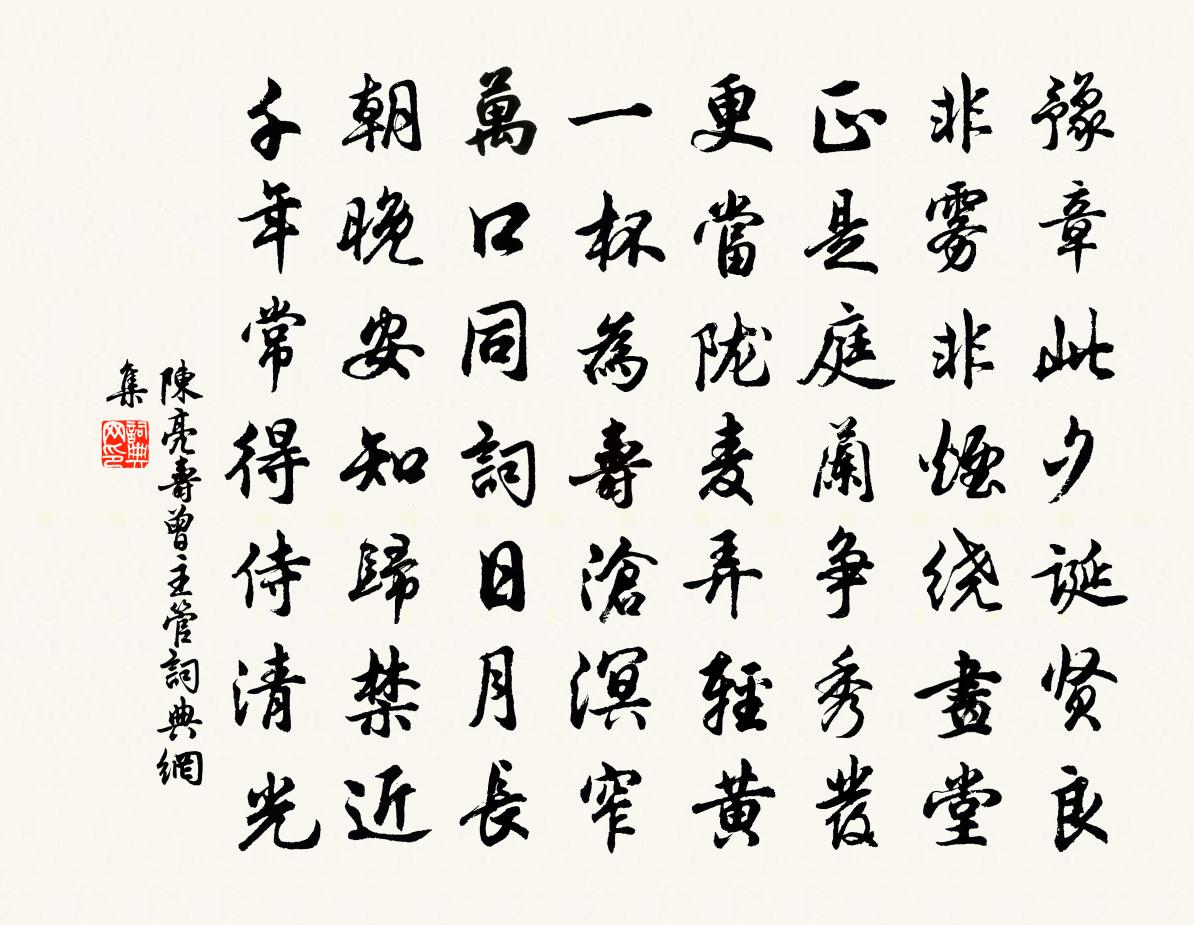 豫章此夕誕贤良
非雾非煙绕畫堂
正是庭蘭争秀發
更當陇麦弄輕黄
一杯為壽滄溟窄
萬口同詞日月長
朝晚安知歸禁近
千年常得侍清光
陳亮壽曾主管詞典網
集
詞典
网印